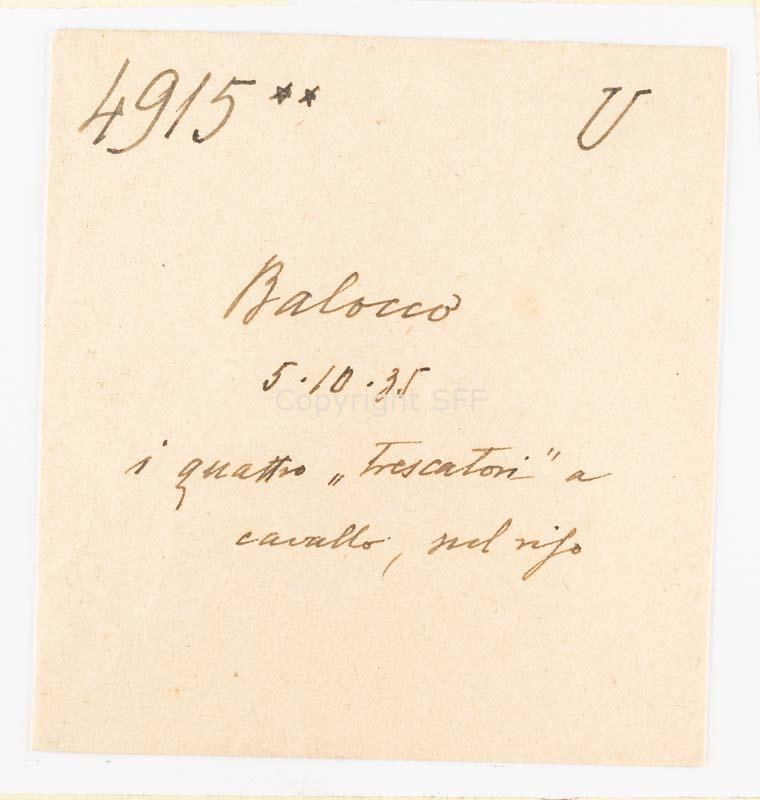 4915** U
Balocco
5.10.35
Copyright SFF
i quattro „trescatori" a
cavallo, nel riso